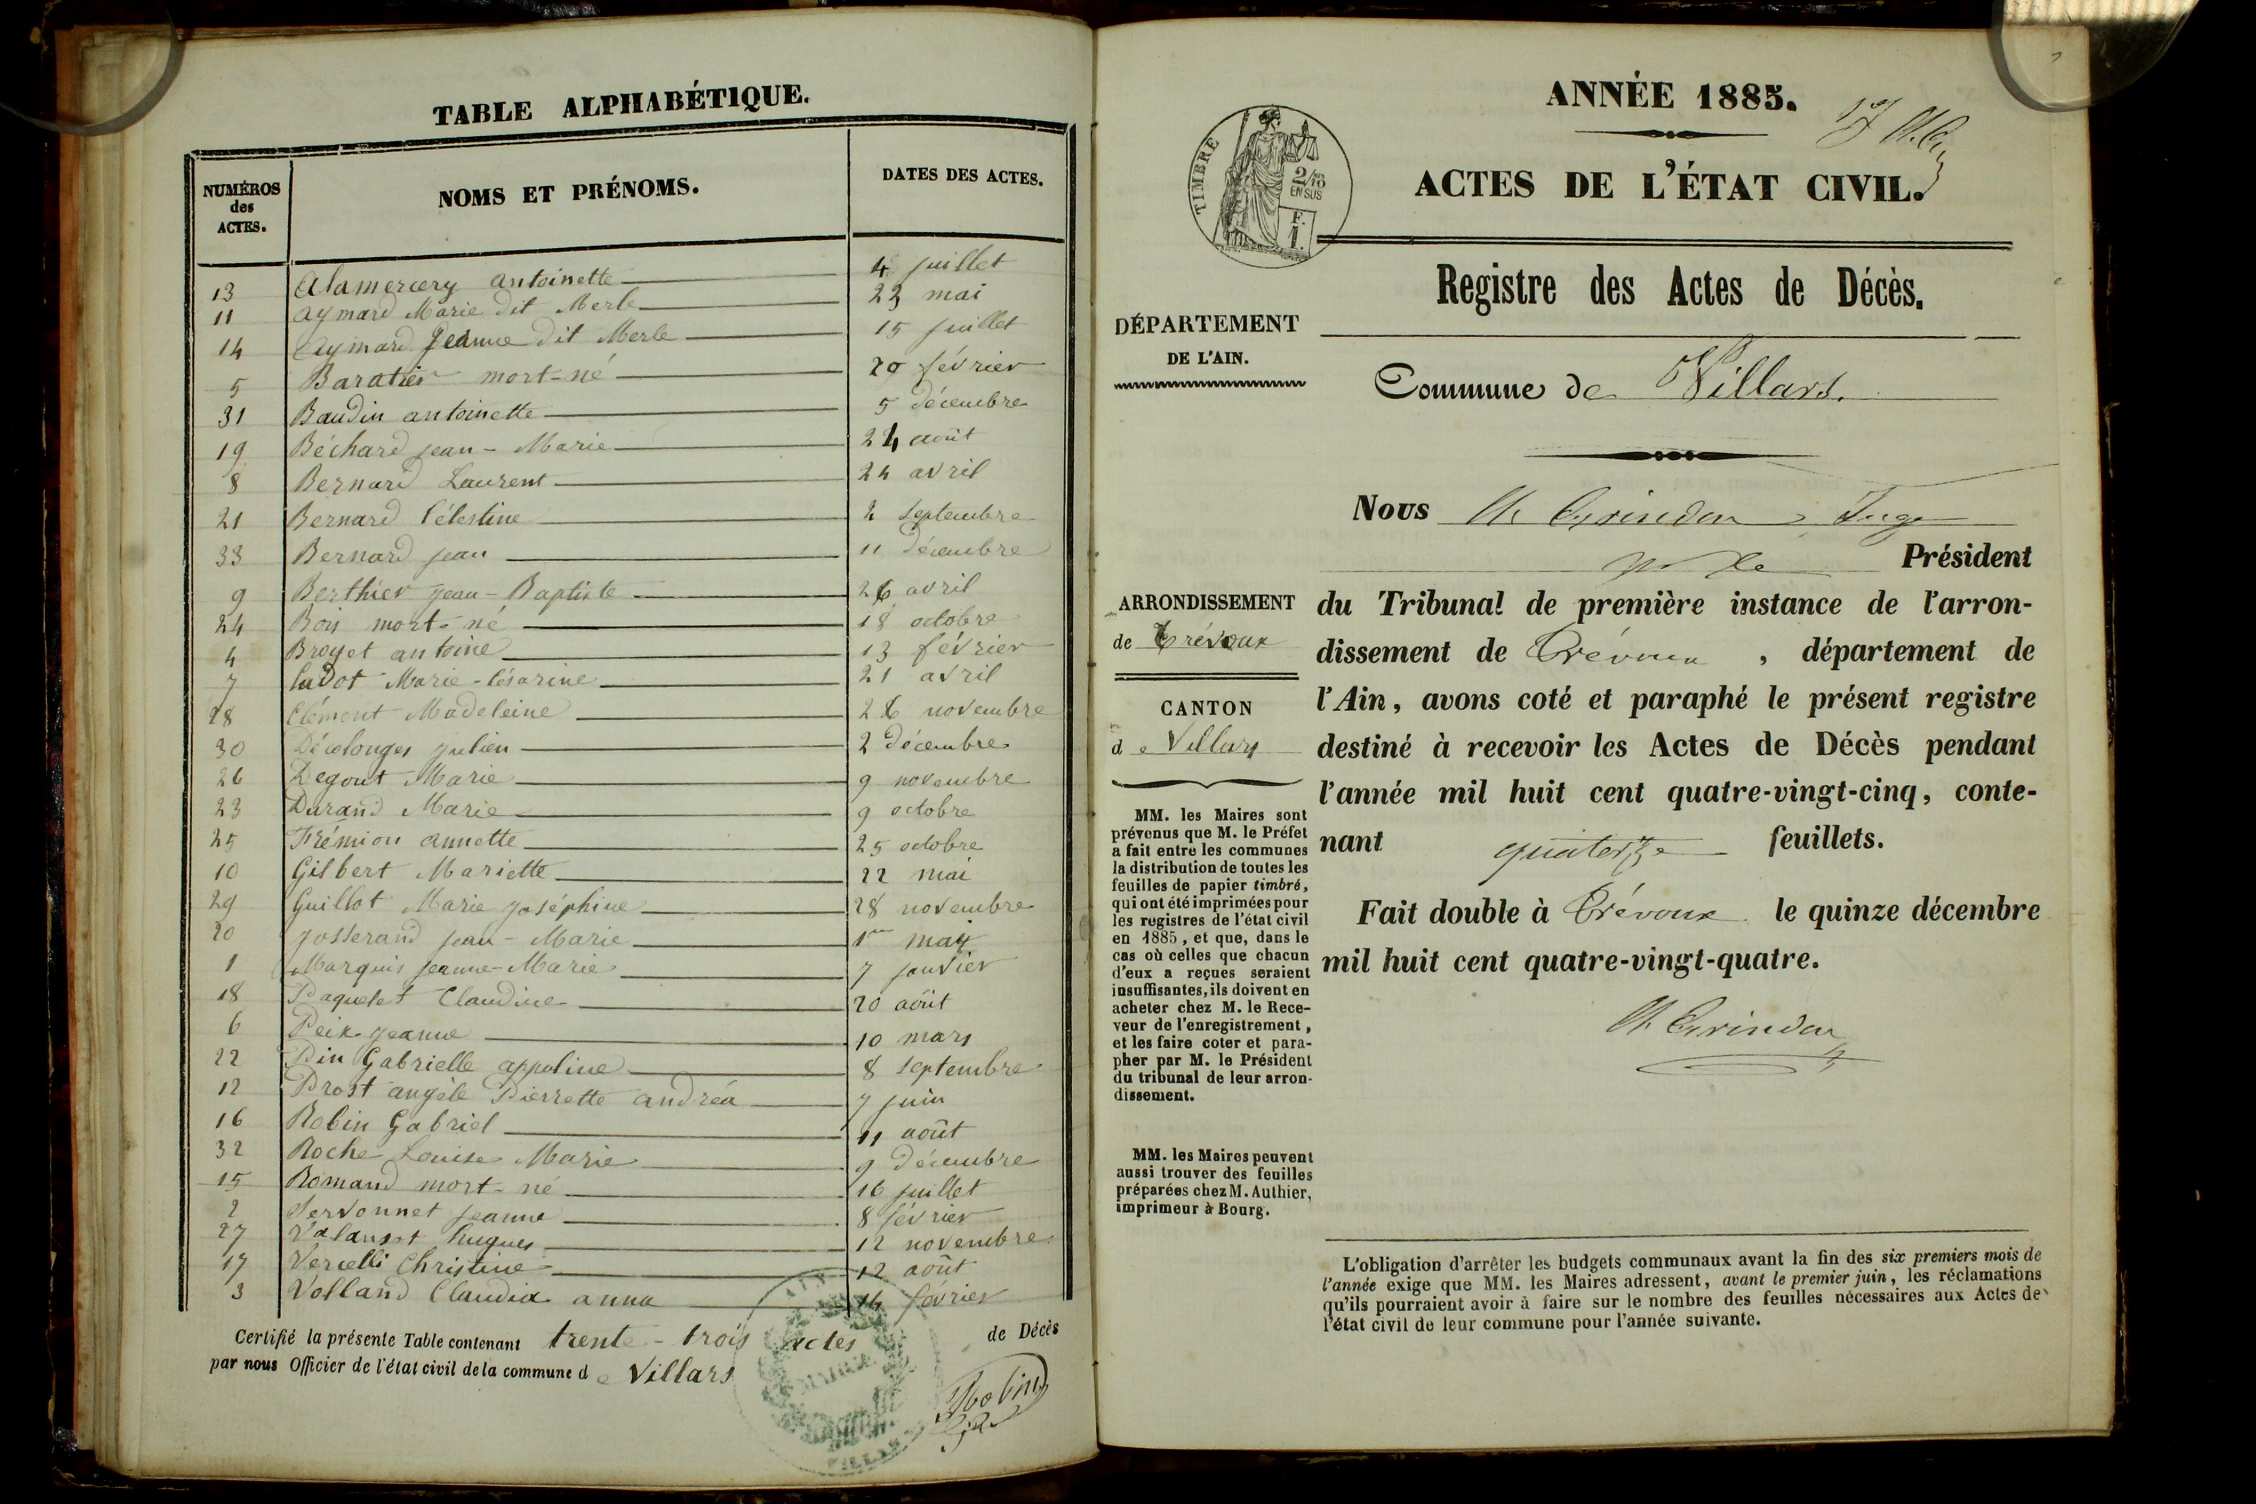 TABLE ALPHABÉTIQUE.
NUMÉROS des ACTES. NOMS ET PRÉNOMS. DATES DES ACTES.
13 Alamercery antoinette 4 juillet
11 aymard Marie dit Merle 23 mai
14 aymard Jeanne dit Merle 15 juillet
5 Baratier mort-né 20 février
31 Baudin antoinette 5 décembre
19 Béchard jean-Marie 24 août
8 Bernard Laurent 24 avril
21 Bernard Célestine 2 septembre
33 Bernard jean 11 décembre
9 Berthier jean-Baptiste 26 avril
24 Bois mort-né 18 octobre
4 Broyet antoine 13 février
7 Cadot Marie-Césarine 21 avril
28 Clément Madeleine 26 novembre
30 Décolonges julien 2 décembre
26 Degout Marie 9 novembre
23 Durand Marie 9 octobre
25 Frémion annette 25 octobre
10 Gilbert Mariette 22 mai
29 Guillot Marie joséphine 28 novembre
20 josserand jean-Marie 1er
1 Marquis jeanne-Marie 7 janvier
18 Paquelet Claudine 20 août
6 Peix jeanne 10 mars
22 Pin Gabrielle appoline 8 septembre
12 Prost angèle Pierrette andréa 7 juin
16 Robin Gabriel 11 août
32 Roche Louise Marie 9 décembre
15 Romand mort-né 16 juillet
2 Servonnet jeanne 8 février
27 Valansot hugues 12 novembre
17 Vercelli Christine 12 août
3 Volland Claudia anna 14 février
Certifié la présente Table contenant trente-trois actes de Décès
par nous Officier de l'état civil de la commune de Villars
MAIRIE
Robin
ANNÉE 1885.
TIMBRE
2/10 EN SUS
F. 1.
ACTES DE L'ÉTAT CIVIL.
Registre des Actes de Décès.
DÉPARTEMENT
DE L'AIN.
Commune de Villars.
ARRONDISSEMENT
de Trévoux
CANTON
de Villars
MM. les Maires sont
prévenus que M. le Préfet
a fait entre les communes
la distribution de toutes les
feuilles de papier timbré,
qui ont été imprimées pour
les registres de l'état civil
en 1885, et que, dans le
cas où celles que chacun
d'eux a reçues seraient
insuffisantes, ils doivent en
acheter chez M. le Rece-
veur de l'enregistrement,
et les faire coter et para-
pher par M. le Président
du tribunal de leur arron-
dissement.
MM. les Maires peuvent
aussi trouver des feuilles
préparées chez M. Authier,
imprimeur à Bourg.
Nous Ch Grindon, Juge
Président
du Tribunal de première instance de l'arron-
dissement de Trévoux, département de
l'Ain, avons coté et paraphé le présent registre
destiné à recevoir les Actes de Décès pendant
l'année mil huit cent quatre-vingt-cinq, conte-
nant quatorze feuillets.
Fait double à Trévoux le quinze décembre
mil huit cent quatre-vingt-quatre.
Ch Grindon
L'obligation d'arrêter les budgets communaux avant la fin des six premiers mois de
l'année exige que MM. les Maires adressent, avant le premier juin, les réclamations
qu'ils pourraient avoir à faire sur le nombre des feuilles nécessaires aux Actes de
l'état civil de leur commune pour l'année suivante.